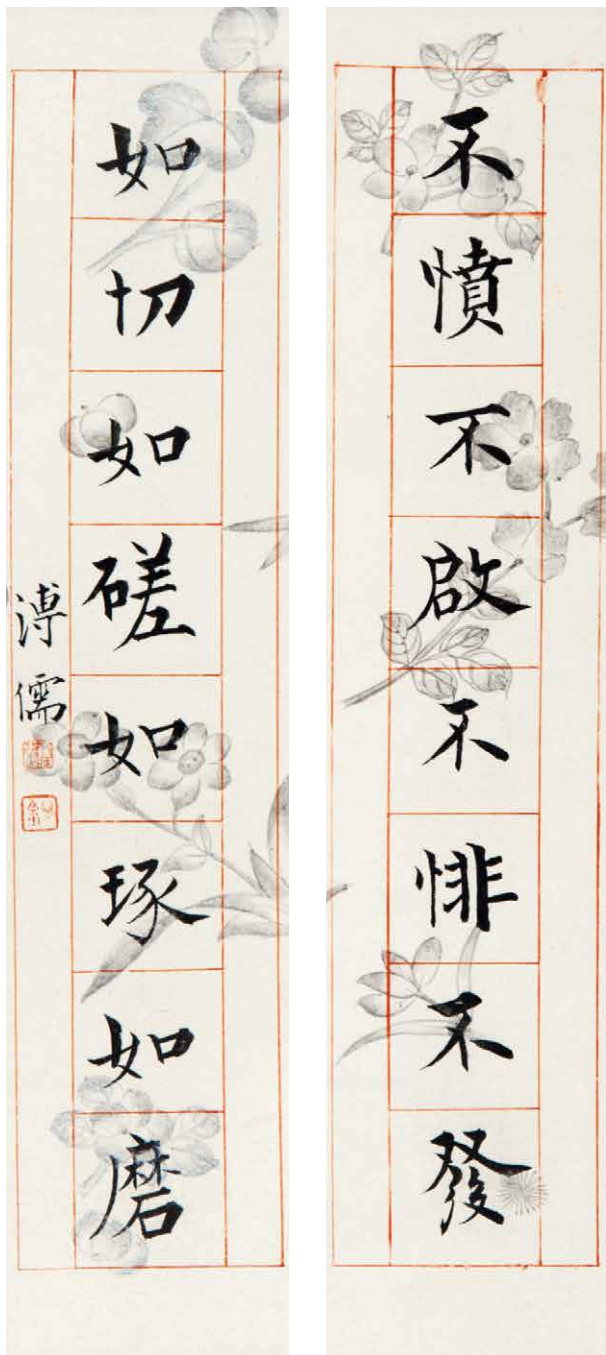 不憤不啟不悱不發
如切如磋如琢如磨
溥儒